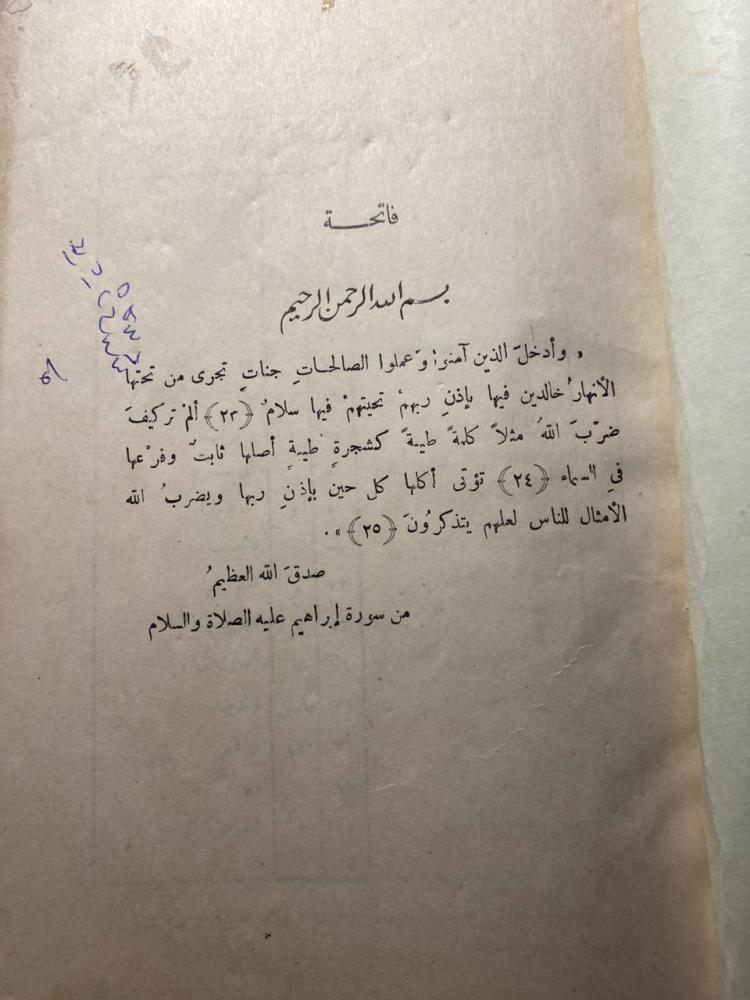 فاتحـــة
بسم الله الرحمن الرحيم
« وأدخلَ الذين آمنوا وَعملوا الصالحاتِ جناتٍ تجرى من تحتها
الأنهارُ خالدين فيها بإذنِ ربهمْ تحيتهمْ فيها سلامٌ ﴿٢٣﴾ ألمْ تركيفَ
ضربَ اللهُ مثلاً كلمةً طيبةً كشجرةٍ طيبةٍ أصلها ثابتٌ وفرْعها
فى السماء ﴿٢٤﴾ تؤتى أكلها كل حين بإذنِ ربها ويضربُ الله
الأمثال للناس لعلهم يتذكرُونَ ﴿٢٥﴾ » .
صدقَ الله العظيمُ
من سورة إبراهيم عليه الصلاة والسلام